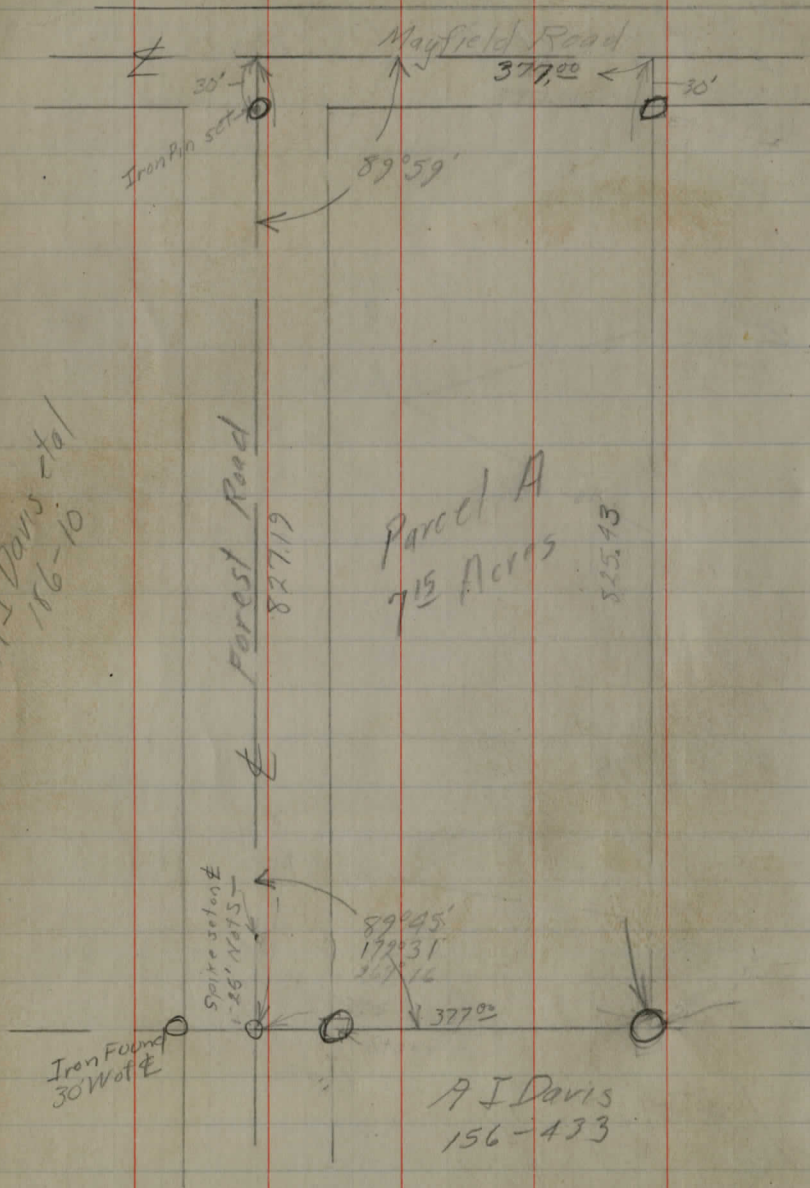 Mayfield Road
377.00
30'
30'
Iron Pin set
89°59'
I Davis etal
186-10
Forest Road
827.19
Parcel A
7 15 Acres
825.43
℄
℄
Spike set on ℄
89°45'
31'
377 00
Iron Found
30' W of ℄
A I Davis
156-433